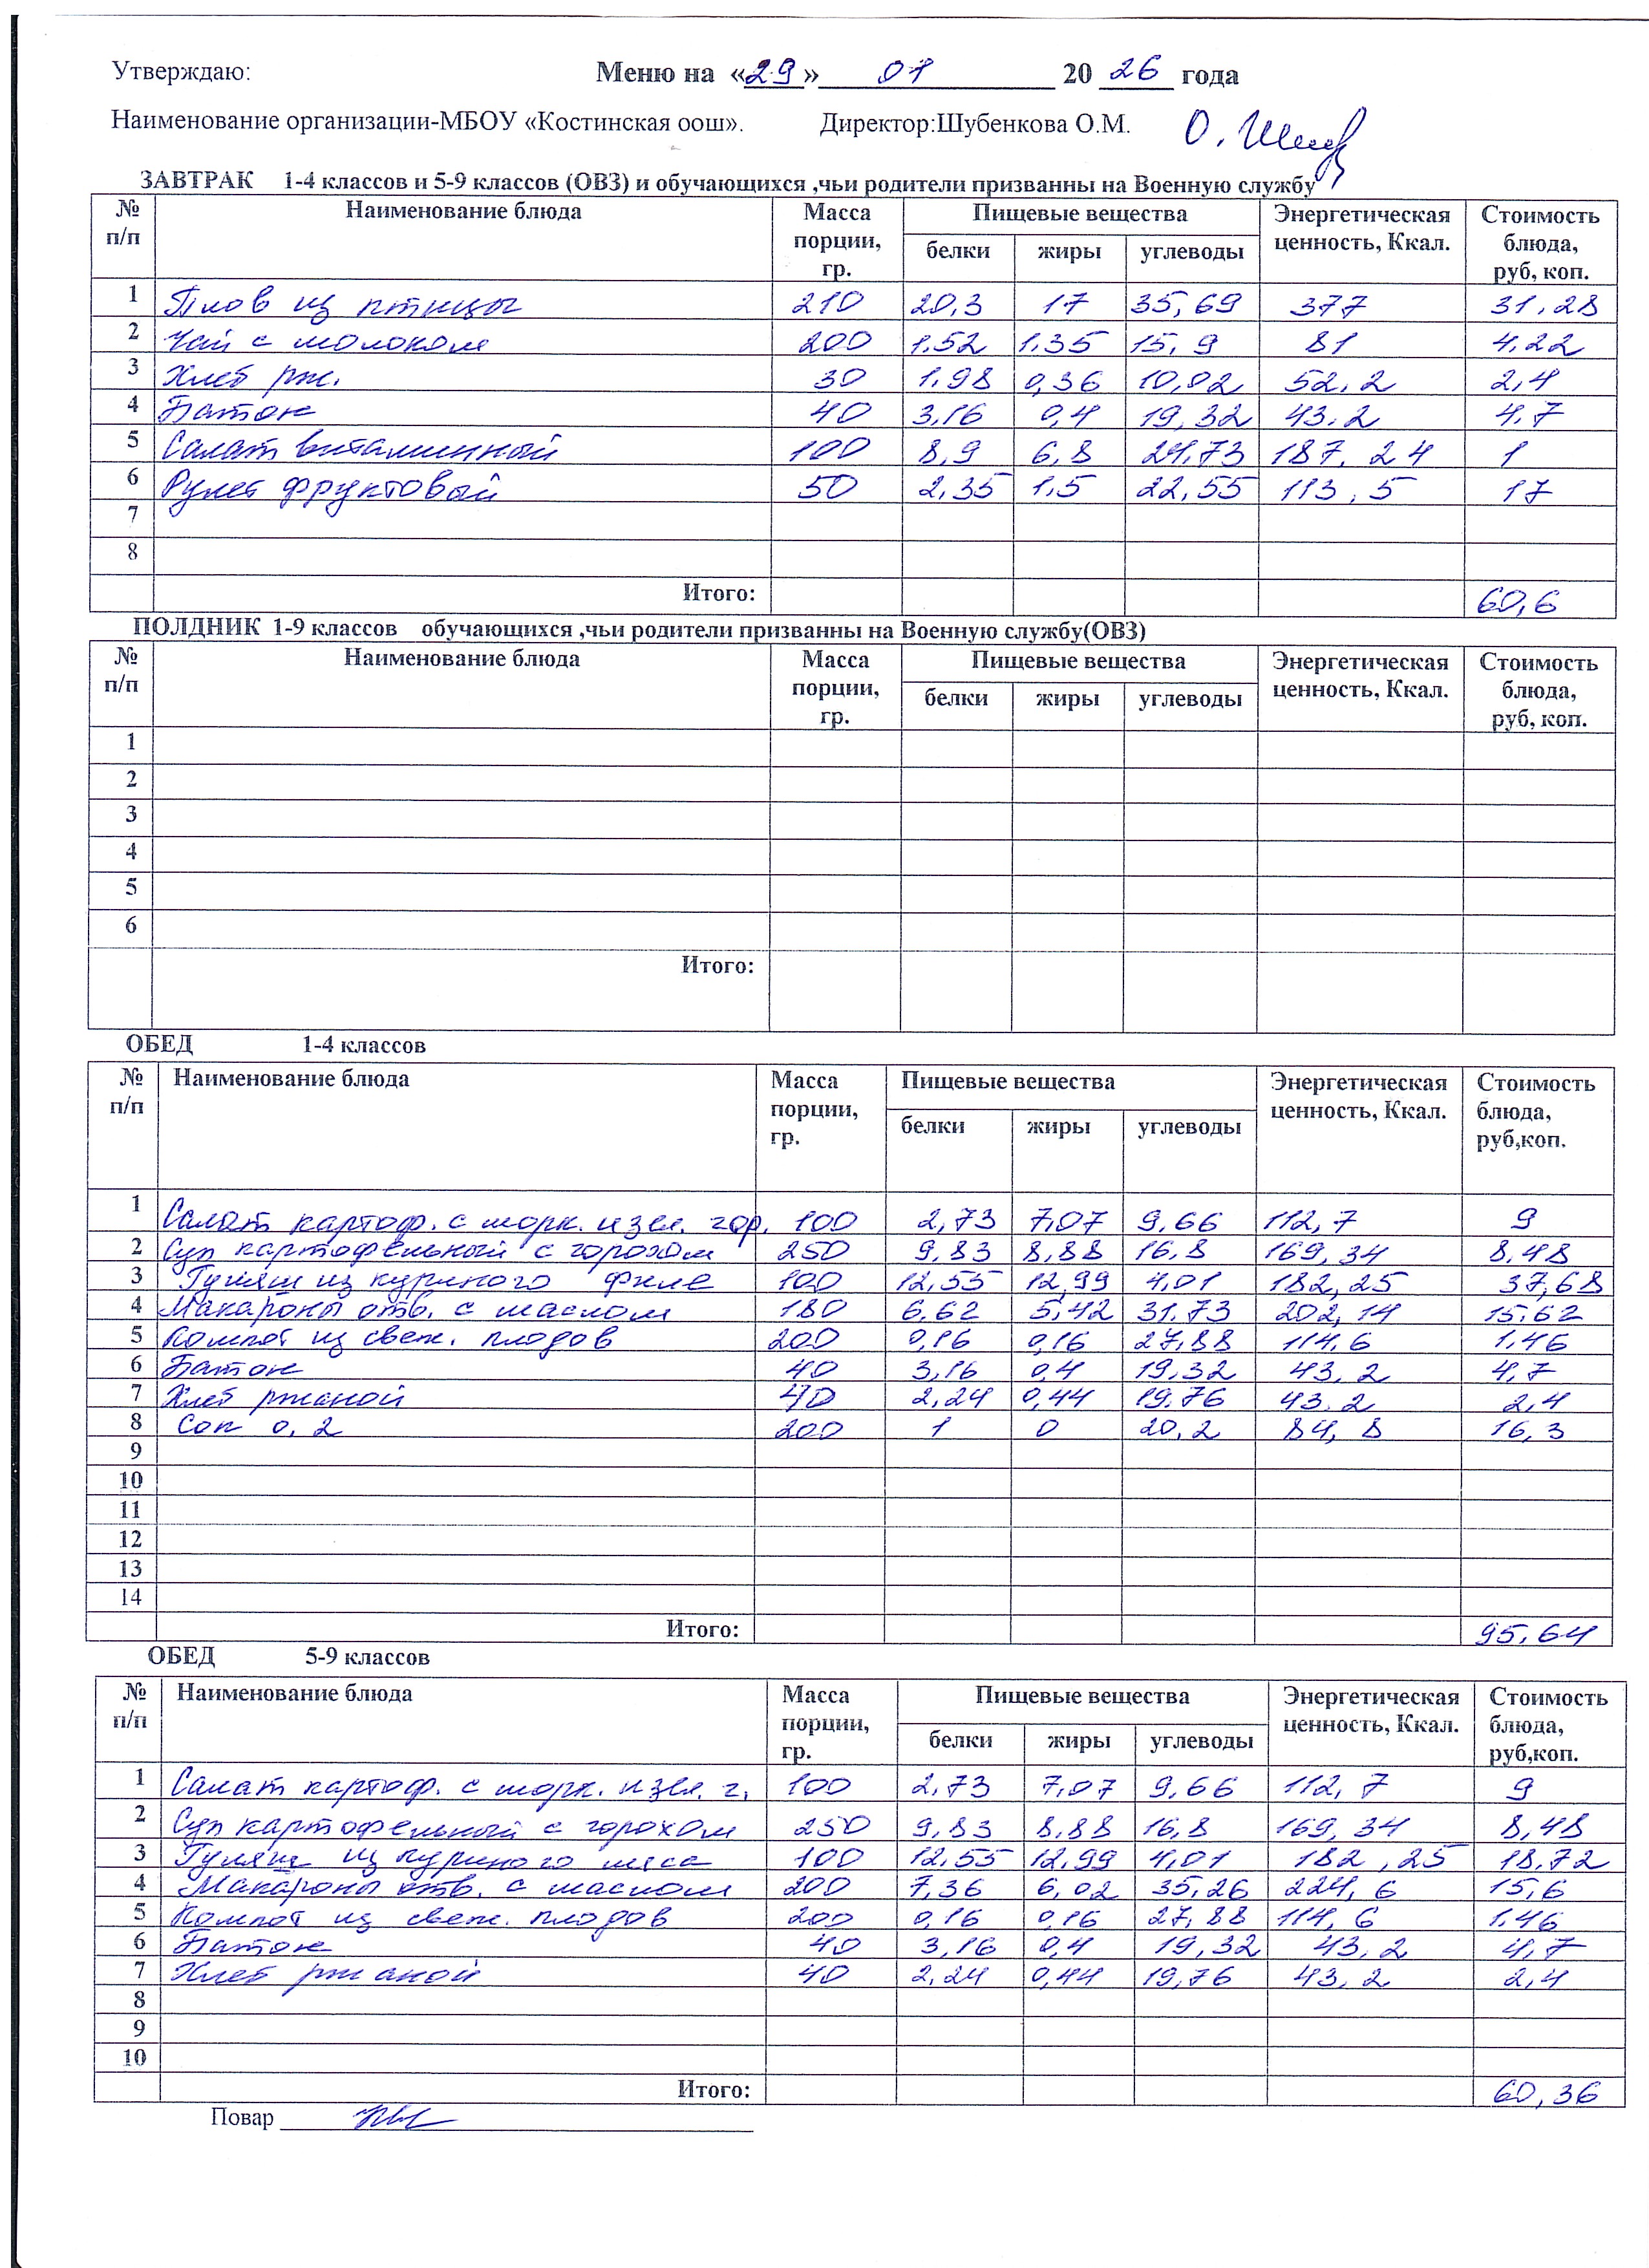 Утверждаю: Меню на «29» 01 20 26 года
Наименование организации-МБОУ «Костинская оош». Директор:Шубенкова О.М.
ЗАВТРАК 1-4 классов и 5-9 классов (ОВЗ) и обучающихся ,чьи родители призванны на Военную службу
№ п/п Наименование блюда Масса порции, гр. Пищевые вещества Энергетическая ценность, Ккал. Стоимость блюда, руб, коп.
белки жиры углеводы
1 Плов из птицы 210 20,3 17 35,69 377 31,28
2 Чай с молоком 200 1.52 1.35 15,9 81 4,22
3 Хлеб рж. 30 1,98 0,36 10,02 52,2 2,4
4 Батон 40 3,16 0,4 19,32 43,2 4,7
5 Салат витаминный 100 8,9 6,8 24,73 187,24 1
6 Рулет фруктовый 50 2,35 1,5 22,55 113,5 17
7
8
Итого: 60,6
ПОЛДНИК 1-9 классов обучающихся ,чьи родители призванны на Военную службу(ОВЗ)
№ п/п Наименование блюда Масса порции, гр. Пищевые вещества Энергетическая ценность, Ккал. Стоимость блюда, руб, коп.
белки жиры углеводы
1
2
3
4
5
6
Итого:
ОБЕД 1-4 классов
№ п/п Наименование блюда Масса порции, гр. Пищевые вещества Энергетическая ценность, Ккал. Стоимость блюда, руб,коп.
белки жиры углеводы
1 Салат картоф. с морк. и зел. гор. 100 2,73 7,07 9,66 112,7 9
2 Суп картофельный с горохом 250 9,83 8,88 16,8 169,34 8,48
3 Гуляш из куриного филе 100 12,55 12,99 4,01 182,25 37,68
4 Макароны отв. с маслом 180 6,62 5,42 31,73 202,14 15,62
5 Компот из свеж. плодов 200 0,16 0,16 27,88 114,6 1.46
6 Батон 40 3,16 0,4 19,32 43,2 4,7
7 Хлеб ржаной 40 2,24 0,44 19,76 43,2 2,4
8 Сок 0,2 200 1 0 20,2 84,8 16,3
9
10
11
12
13
14
Итого: 95,64
ОБЕД 5-9 классов
№ п/п Наименование блюда Масса порции, гр. Пищевые вещества Энергетическая ценность, Ккал. Стоимость блюда, руб,коп.
белки жиры углеводы
1 Салат картоф. с морк. и зел. г. 100 2,73 7,07 9,66 112,7 9
2 Суп картофельный с горохом 250 9,83 8,88 16,8 169,34 8,48
3 Гуляш из куриного мяса 100 12,55 12,99 4,01 182,25 18,72
4 Макароны отв. с маслом 200 7,36 6,02 35,26 224,6 15,6
5 Компот из свеж. плодов 200 0,16 0,16 27,88 114,6 1.46
6 Батон 40 3,16 0,4 19,32 43,2 4,7
7 Хлеб ржаной 40 2,24 0,44 19,76 43,2 2,4
8
9
10
Итого: 60,36
Повар